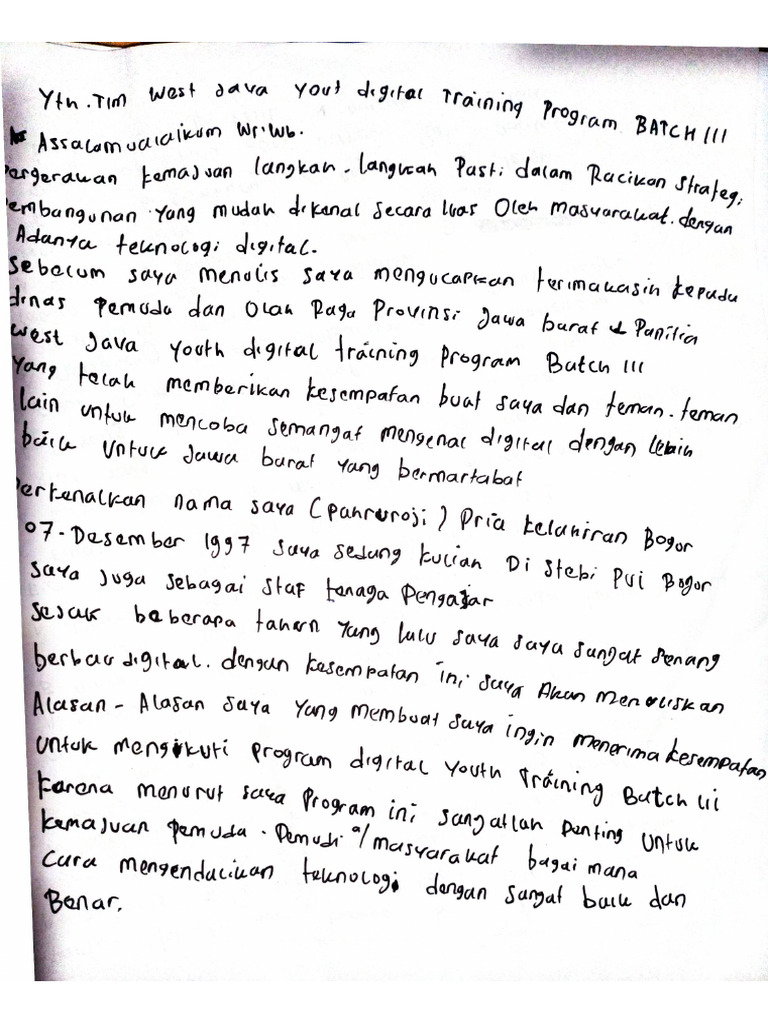 Yth. TIM West Java Yout digital Training Program BATCH III
Assalamualaikum Wr.Wb.
Pergerakan kemajuan langkah-langkah Pasti dalam Racikan Strategi
Pembangunan yang mudah dikenal secara luas Oleh Masyarakat. dengan
Adanya teknologi digital.
Sebelum saya menulis saya mengucapkan terimakasih kepada
dinas Pemuda dan Olah Raga Provinsi Jawa barat & Panitia
West Java youth digital training Program Batch III
Yang telah memberikan kesempatan buat saya dan teman-teman
lain untuk mencoba semangat mengenal digital dengan lebih
baik untuk Jawa barat yang bermartabat
Perkenalkan nama saya (Pahruroji) Pria kelahiran Bogor
07-Desember 1997 saya sedang kuliah Di Stebi Pui Bogor
saya juga sebagai staf tenaga Pengajar
sejak beberapa tahun yang lalu saya saya sangat senang
berbau digital. dengan kesempatan ini saya Akan menuliskan
Alasan-Alasan saya yang membuat saya ingin menerima kesempatan
Untuk mengikuti program digital youth Training Batch III
karena menurut saya Program ini sangatlah penting untuk
kemajuan Pemuda-Pemudi a/masyarakat bagai mana
Cara mengendalikan teknologi dengan sangat baik dan
Benar.